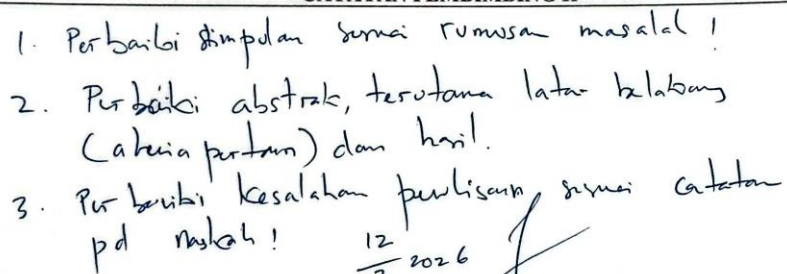 1. Perbaiki simpulan sesuai rumusan masalah !
2. Perbaiki abstrak, terutama latar belakang
(alinea pertama) dan hasil.
3. Perbaiki kesalahan penulisan, sesuai catatan
pd naskah !
12
2026